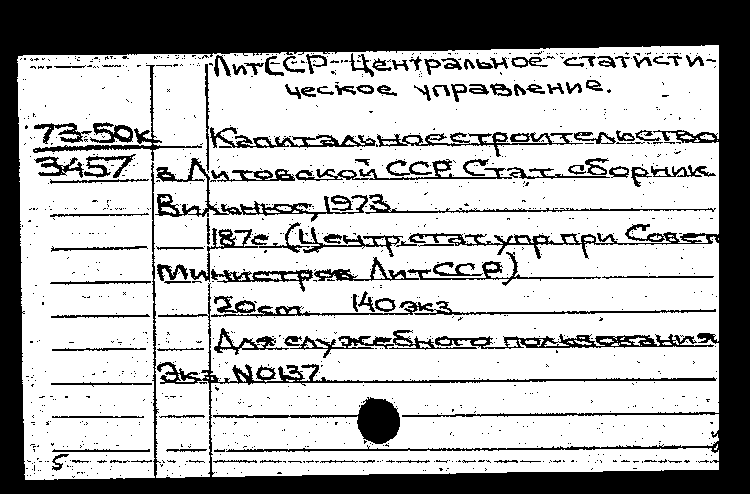 ЛитССР. Центральное статисти-
ческое управление.
73-50к
3457
Капитальное строительство
в Литовской ССР. Стат. сборник.
Вильнюс, 1973.
187с. (Центр. стат. упр. при Совет
Министров ЛитССР)
20 cm. 140 экз.
Для служебного пользования
Экз. N0137.
5